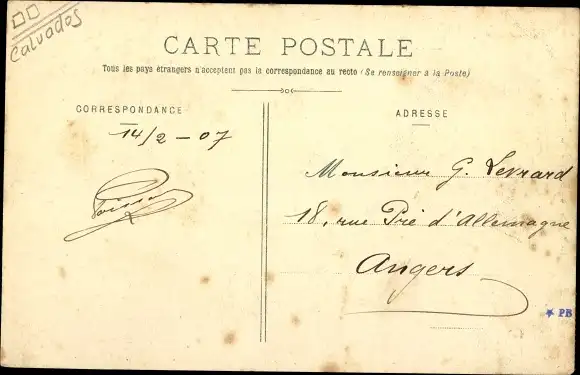 Calvados
CARTE POSTALE
Tous les pays étrangers n'acceptent pas la correspondance au recto (Se renseigner à la Poste)
CORRESPONDANCE
14/2 - 07
ADRESSE
Monsieur G. Levrard
18, rue Pré d'Allemagne
Angers
PB